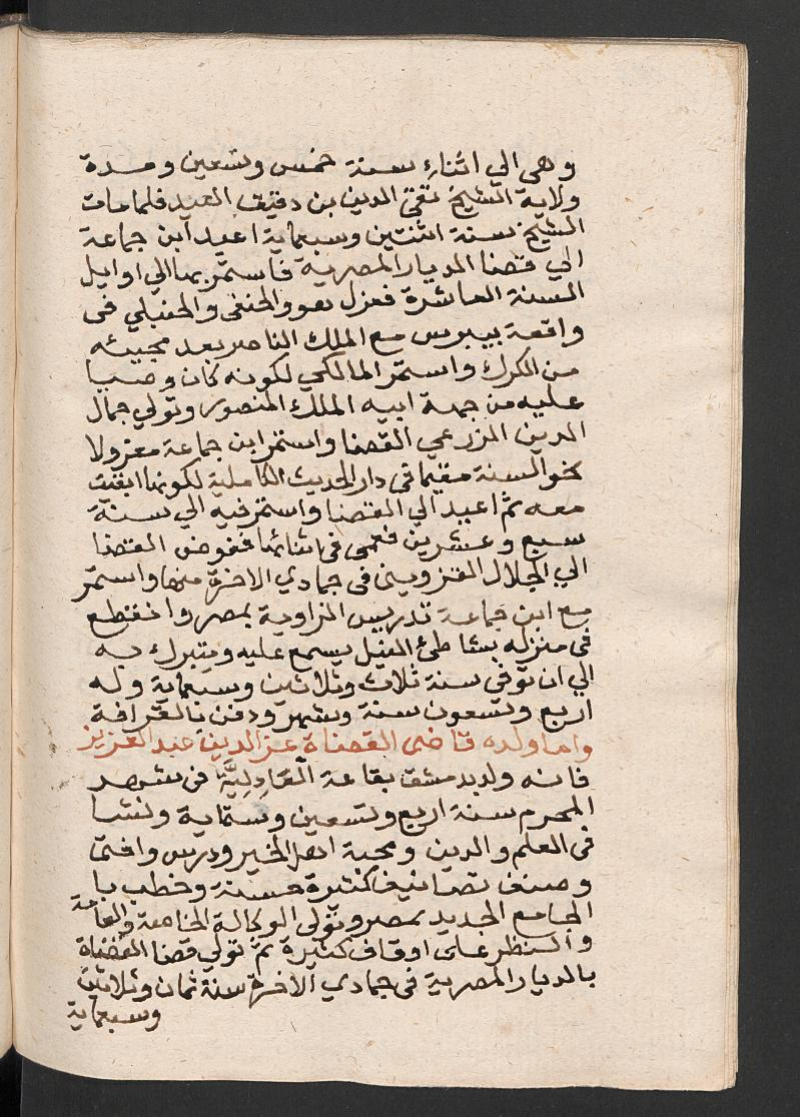 وهى الي اثناء سنة خمس وتسعين ومدة
ولاية الشيخ تقى الدين بن دقيق العيد فلما مات
الشيخ سنة اثنتين وسبعماية اعيد ابن جماعة
الي قضا الديار المصرية فاستمر بها الي اوايل
السنة العاشرة فعزل هو والحنفى والحنبلي فى
واقعة بيبرس مع الملك الناصر بعد مجيئه
من الكرك واستمر المالكي لكونه كان وصيا
عليه من جهة ابيه الملك المنصور وتولي جمال
الدين الزرعي القضا واستمر ابن جماعة معزولا
نحو السنة مقيما فى دار الحديث الكاملية لكونها ابقيت
معه ثم اعيد الي القضا واستمر فيه الي سنة
سبع وعشرين فعمى فى اثنائها ففوض القضا
الي الجلال القزوينى فى جمادي الاخرة منها واستمر
مع ابن جماعة تدريس الزاوية بمصر وانقطع
فى منزله بشاطئ النيل يسمع عليه ويتبرك به
الي ان توفى سنة ثلاث وثلاثين وسبعماية وله
اربع وتسعون سنة وشهر ودفن بالقرافة
واما ولده قاضى القضاة عز الدين عبد العزيز
فانه ولد بدمشق بقاعة العَادِلِيَّة فى شهر
المحرم سنة اربع وتسعين وستماية ونشا
فى العلم والدين ومحبة اهل الخير ودرس وافتى
وصنف تصانيف كثيرة حسنة وخطب با
الجامع الجديد بمصر وتولى الوكالة الخاصة والعامة
والنظر على اوقاف كثيرة ثم تولي قضا القضاة
بالديار المصرية فى جمادي الاخرة سنة ثمان وثلاثين
وسبعماية